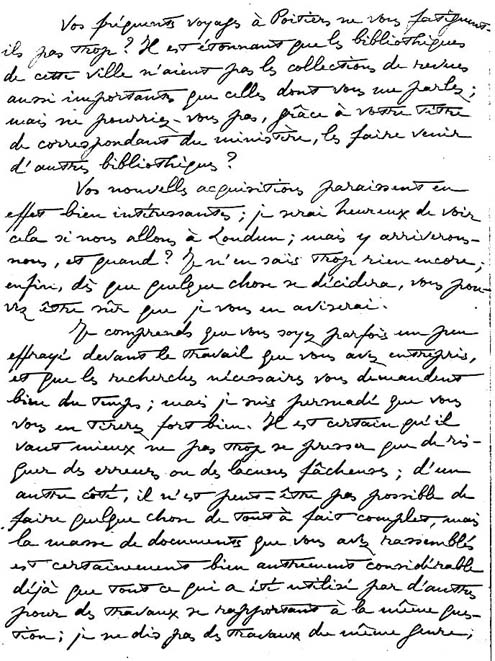 Vos fréquents voyages à Poitiers ne vous fatiguent-
ils pas trop ? Il est étonnant que les bibliothèques
de cette ville n'aient pas les collections de revues
aussi importantes que celles dont vous me parlez ;
mais ne pourriez-vous pas, grâce à votre titre
de correspondant du ministère, les faire venir
d'autres bibliothèques ?
Vos nouvelles acquisitions paraissent en
effet bien intéressantes ; je serai heureux de voir
cela si nous allons à Loudun ; mais y arriverons-
nous, et quand ? Je n'en sais trop rien encore ;
enfin, dès que quelque chose se décidera, vous pou-
vez être sûr que je vous en aviserai.
Je comprends que vous soyez parfois un peu
effrayé devant le travail que vous avez entrepris,
et que les recherches nécessaires vous demandent
bien du temps ; mais je suis persuadé que vous
vous en tirerez fort bien. Il est certain qu'il
vaut mieux ne pas trop se presser que de ris-
quer des erreurs ou des lacunes fâcheuses ; d'un
autre côté, il n'est peut-être pas possible de
faire quelque chose de tout à fait complet, mais
la masse de documents que vous avez rassemblés
est certainement bien autrement considérable
déjà que tout ce qui a été utilisé par d'autres
pour des travaux se rapportant à la même ques-
tion ; je ne dis pas des travaux du même genre,